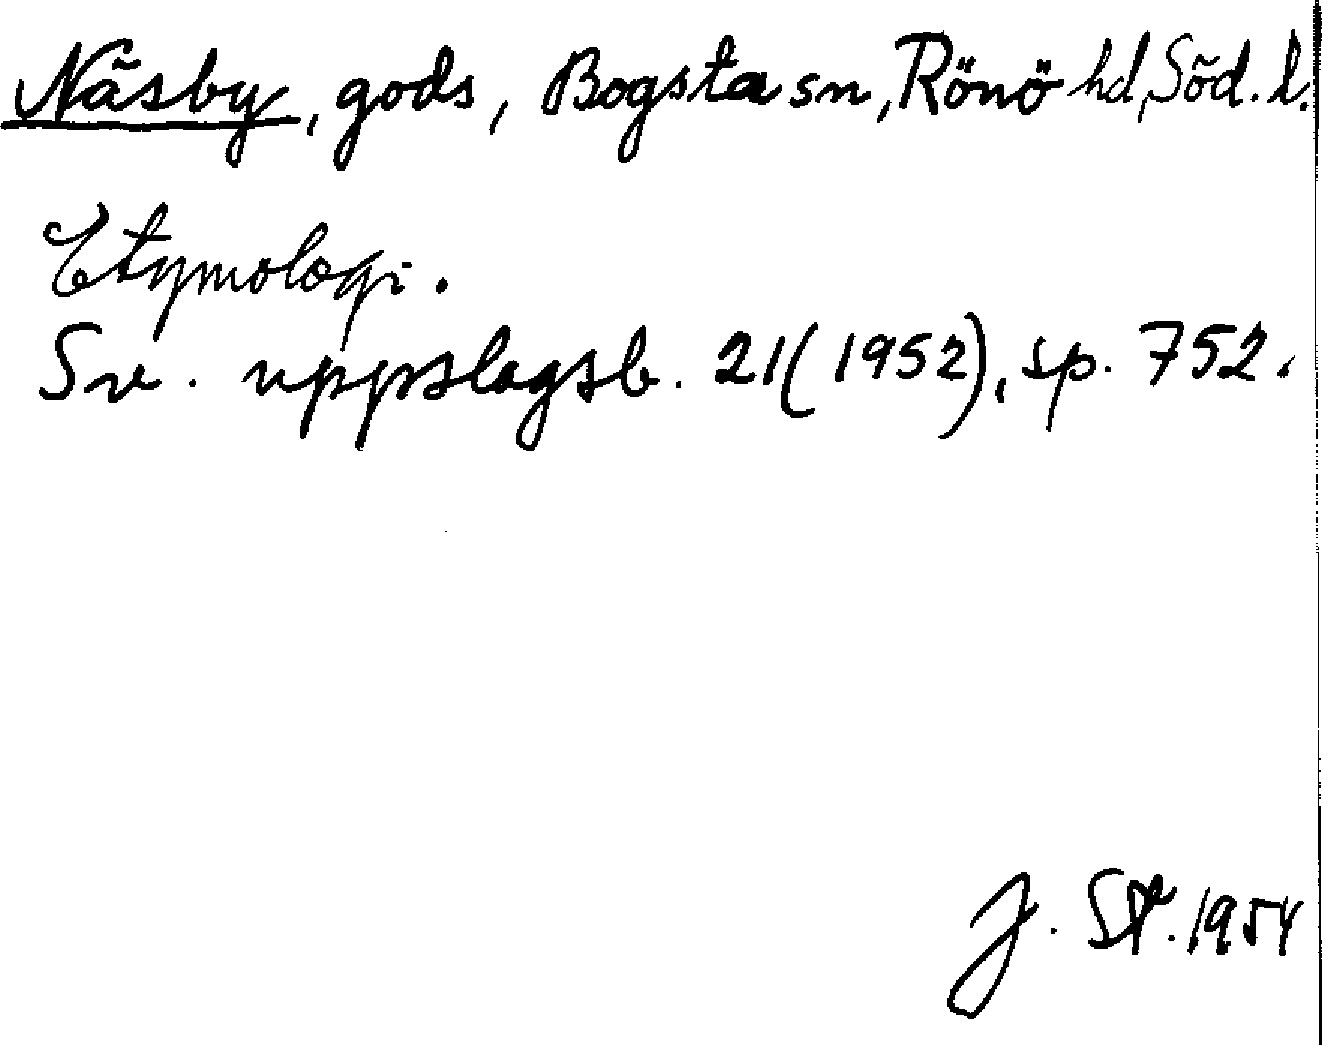 Näsby, gods, Bogsta sn, Rönö hd, Söd. l.
Etymologi.
Sv. uppslagsb. 21(1952), sp. 752.
J. St. 1954